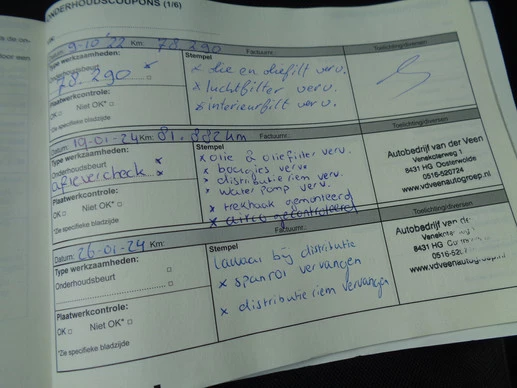 ONDERHOUDSCOUPONS (1/6)
Datum: 9-10 '22 Km: 78.290 Factuurnr.: Toelichting/diversen
Type werkzaamheden: Stempel
Onderhoudsbeurt
78.290
x luchtfilter verv.
x interieurfilt verv.
Plaatwerkcontrole:
OK Niet OK*
*Zie specifieke bladzijde
Datum: 19-01-24 Km: 81.882 km Factuurnr.: Toelichting/diversen
Type werkzaamheden: Stempel
Onderhoudsbeurt
aflevercheck
x olie & oliefilter verv.
x bougies verv.
x distributieriem verv.
x waterpomp verv.
x trekhaak gemonteerd
Plaatwerkcontrole:
OK Niet OK*
*Zie specifieke bladzijde
Autobedrijf van der Veen
Venekoterweg 1
8431 HG Oosterwolde
0516-520724
www.vdveenautogroep.nl
Datum: 26-01-24 Km: Factuurnr.: Toelichting/diversen
Type werkzaamheden: Stempel
Onderhoudsbeurt
lawaai bij distributie
x spanrol vervangen
x distributieriem vervangen
Plaatwerkcontrole:
OK Niet OK*
*Zie specifieke bladzijde
Autobedrijf van der
8431 HG
www.vdveenautogroep.nl